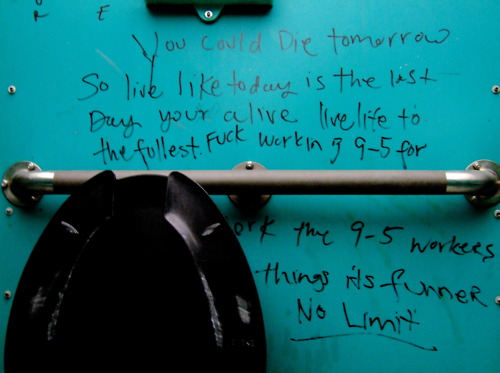 R E
You could Die tomorrow
So live like today is the last
Day your alive live life to
the follest. Fuck working 9-5 for
ork the 9-5 workers
things its funner
No Limit